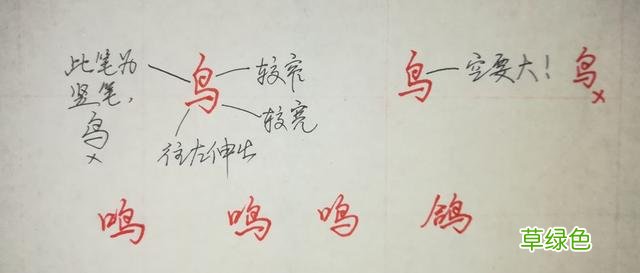 此笔为
竖笔，
鸟
×
鸟
较窄
较宽
往左伸出
鸟
空要大！
鸟
×
鸣 鸣 鸣 鸽
草绿色